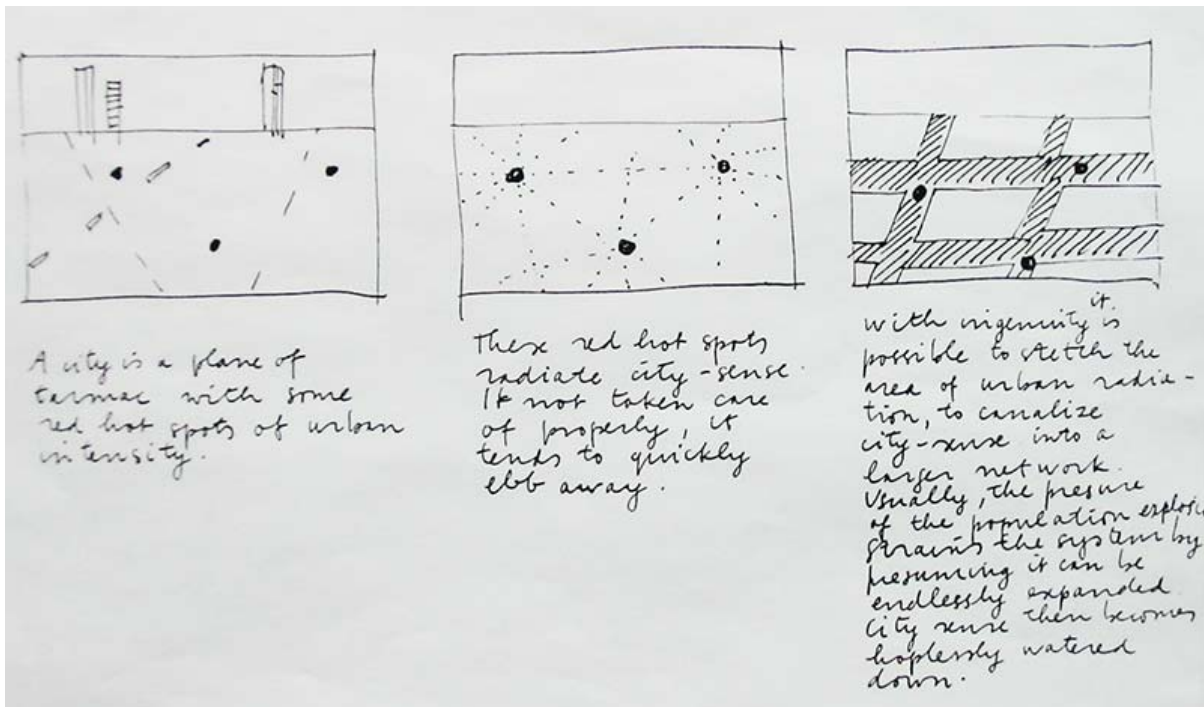 A city is a plane of
tarmac with some
red hot spots of urban
intensity.
These red hot spots
radiate city-sense.
If not taken care
of properly, it
tends to quickly
ebb away.
with ingenuity it is
possible to stetch the
area of urban radia-
tion, to canalize
city-sense into a
larger network.
Usually, the presure
of the population explosi
strains the system by
presuming it can be
endlessly expanded.
City sense then becomes
hoplessly watered
down.